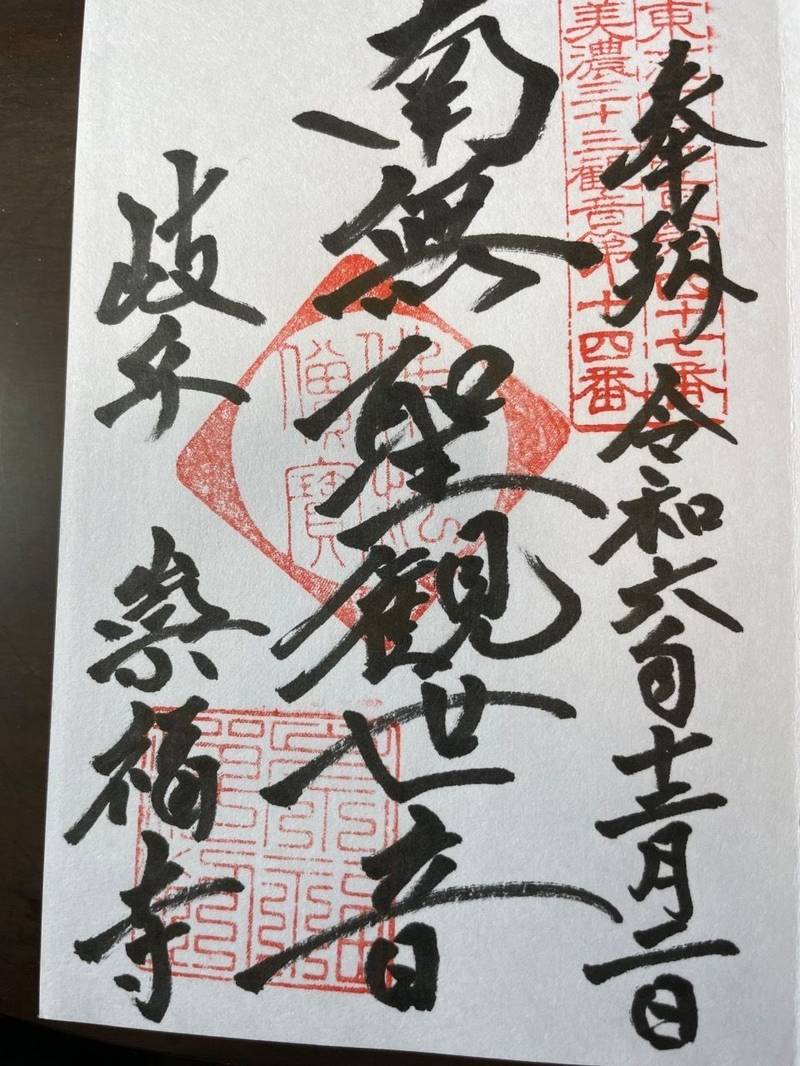 奉拝 令和六年十二月二日
東 十七番
美濃三十三観音第十四番
南無聖観世音
佛法
僧寶
岐阜 崇福寺